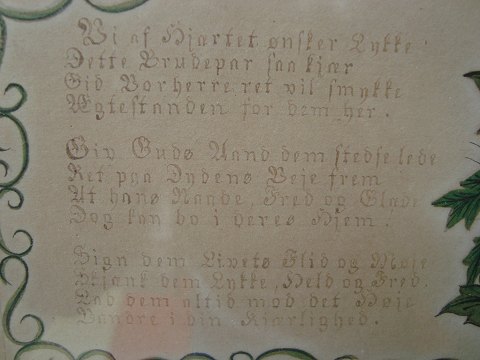 Vi af Hjartet ønsker Lykke
Dette Brudepar saa kjær
Gid Vorherre ret vil smykke
Ægtestanden for dem her.
Giv Guds Aand dem stedse lede
Ret paa Dydens Veje frem
At hans Naade, Fred og Glæde
Dog kan bo i deres Hjem.
Sign dem Livets Flid og Møje
Skjænk dem Lykke, Held og Fred
Lad dem altid mod det Høje
Vandre i din Kjærlighed.